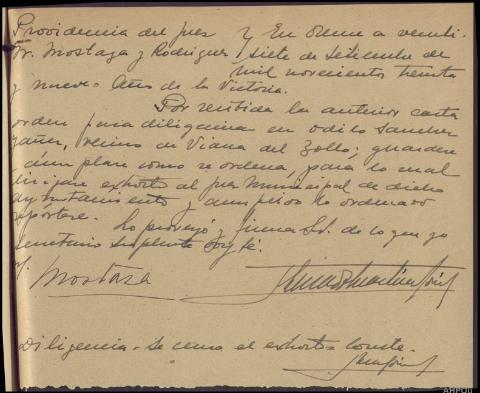 Providencia del Juez } En Orense a veinti-
Sr. Mostaza y Rodriguez } siete de Setiembre de
mil novecientos treinta
y nueve - Año de la Victoria.
Por recibida la anterior carta
orden para diligencia en Odilo Sanchez
Yañez, vecino de Viana del Bollo; guardese
y cumplase como se ordena, para lo cual
dirijase exhorto al Juez Municipal de dicho
Ayuntamiento y cumplido lo ordenado
repórtese. Lo proveyó y firma S.S. de lo que yo
secretario suplente doy fé.
Mostaza
Diligencia - Se cursa el exhorto. Conste.
ARPOU